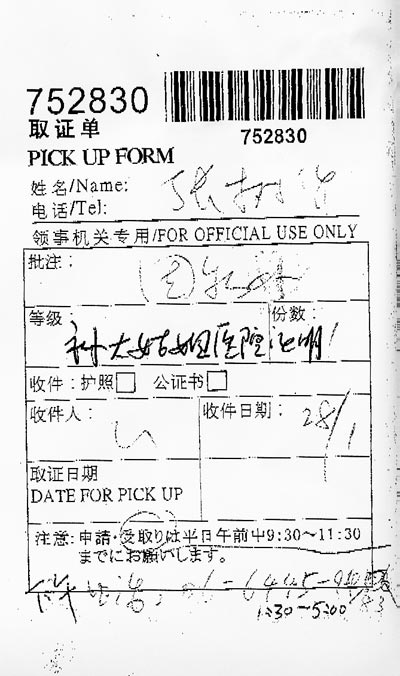 752830
752830
取证单
PICK UP FORM
姓名/Name: 张
电话/Tel:
领事机关专用/FOR OFFICIAL USE ONLY
批注:
等级: 份数: 1
医院证明
收件:护照□ 公证书□
收件人: 收件日期: 28/1
取证日期
DATE FOR PICK UP
注意:申請·受取りは平日午前中9:30～11:30
までにお願いします。
06-6445-
1:30-5:00